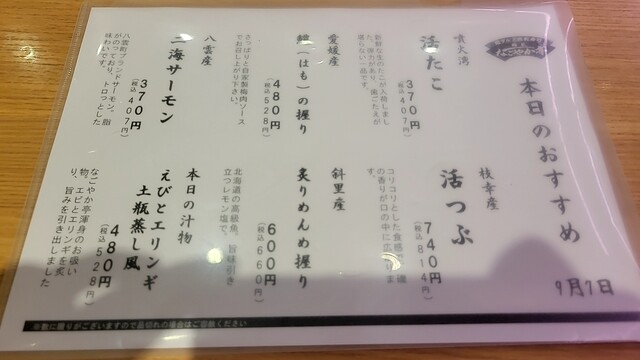 なごやか亭
本日のおすすめ
9月7日
噴火湾
活たこ
370円
(税込407円)
新鮮な生のたこが入荷しまし
た。弾力があり、歯ごたえが
堪らない一品です。
枝幸産
活つぶ
740円
(税込814円)
コリコリとした食感
の香りが口の中に広がりま
す。
愛媛産
鱧(はも)の握り
480円
(税込528円)
さっぱりと自家製梅肉ソース
でお召し上がり下さい。
斜里産
炙りめんめ握り
600円
(税込660円)
北海道の高級魚。旨味引き
立つレモン塩で。
八雲産
二海サーモン
370円
(税込407円)
八雲町ブランドサーモン。脂
がのっており、トロっとした
味わいです。
本日の汁物
えびとエリンギ
土瓶蒸し風
480円
(税込528円)
なごやか亭渾身のお吸い
物。エビとエリンギを炙
り、旨みを引き出しました
※数に限りがございますので品切れの場合はご容赦ください